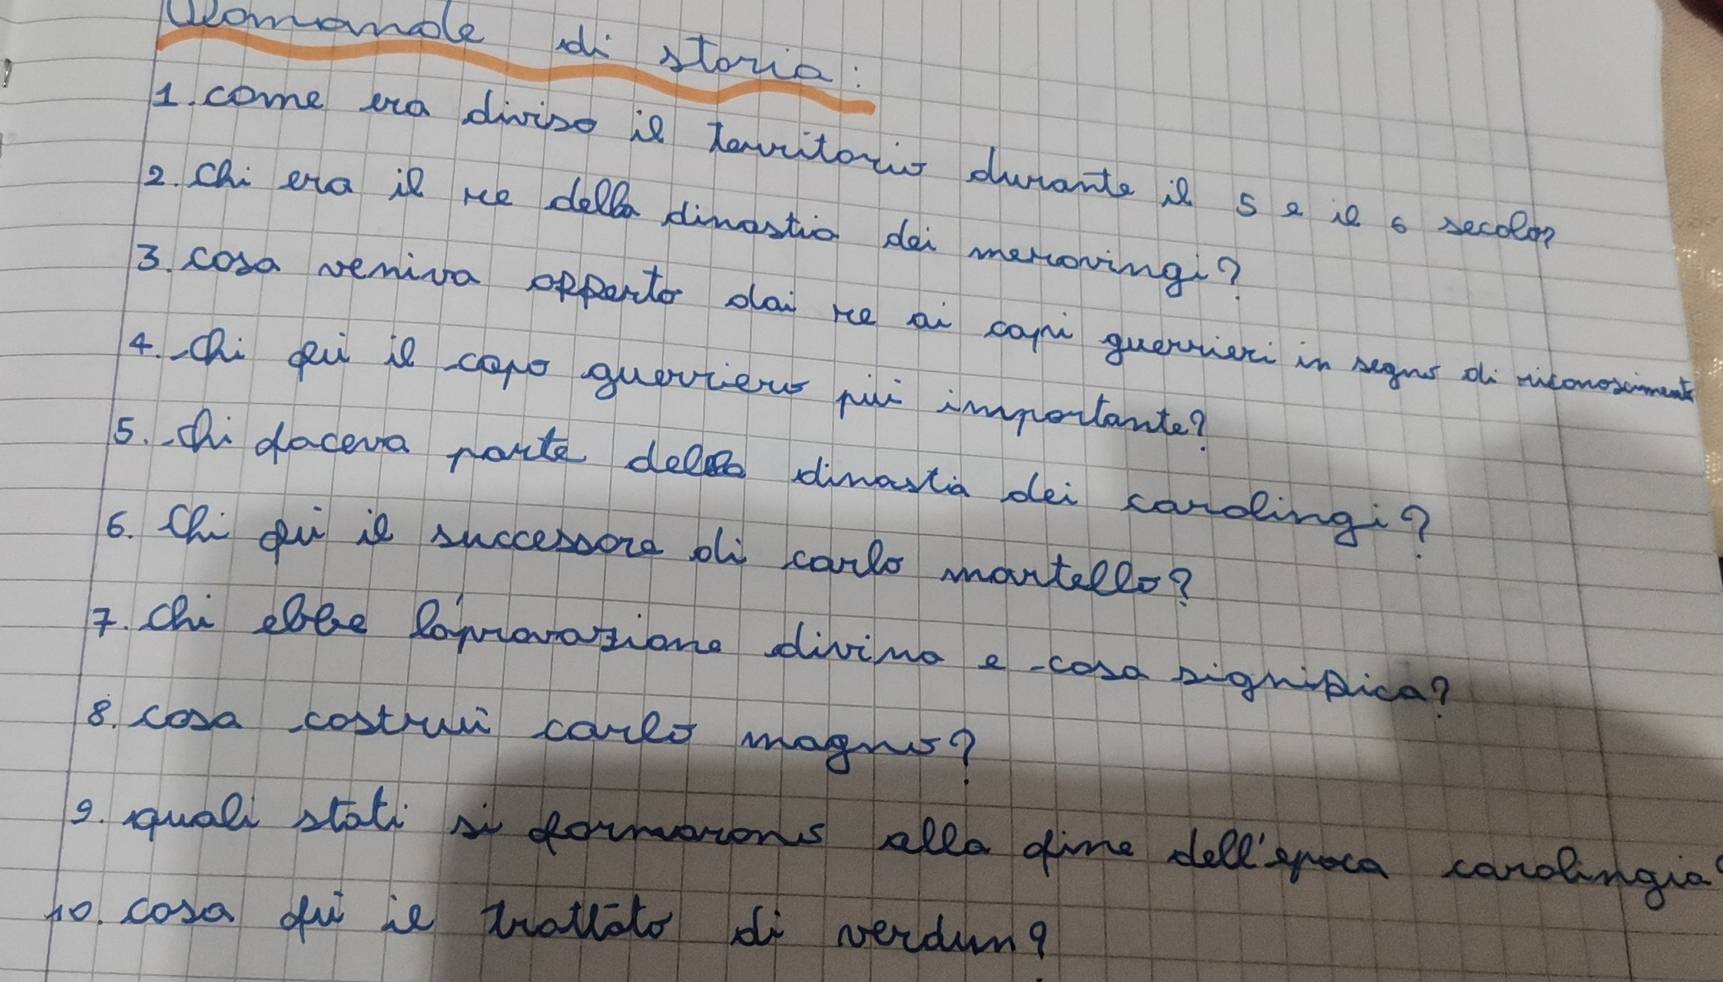 Domande di storia:
1. come era diviso il territorio durante il 5 e il 6 secolo?
2. Chi era il re della dinastia dei merovingi?
3. cosa veniva opperto dai re ai capi guerrieri in segno di riconoscimento
4. Chi fui il capo guerriero più importante?
5. Chi faceva parte della dinastia dei carolingi?
6. Chi fui il successore di carlo martello?
7. Chi ebbe l'aprovazione divina e cosa significa?
8. cosa costrui carlo magno?
9. quali stati si formarono alla fine dell'epoca carolingia?
10. cosa fui il trattato di verdun?